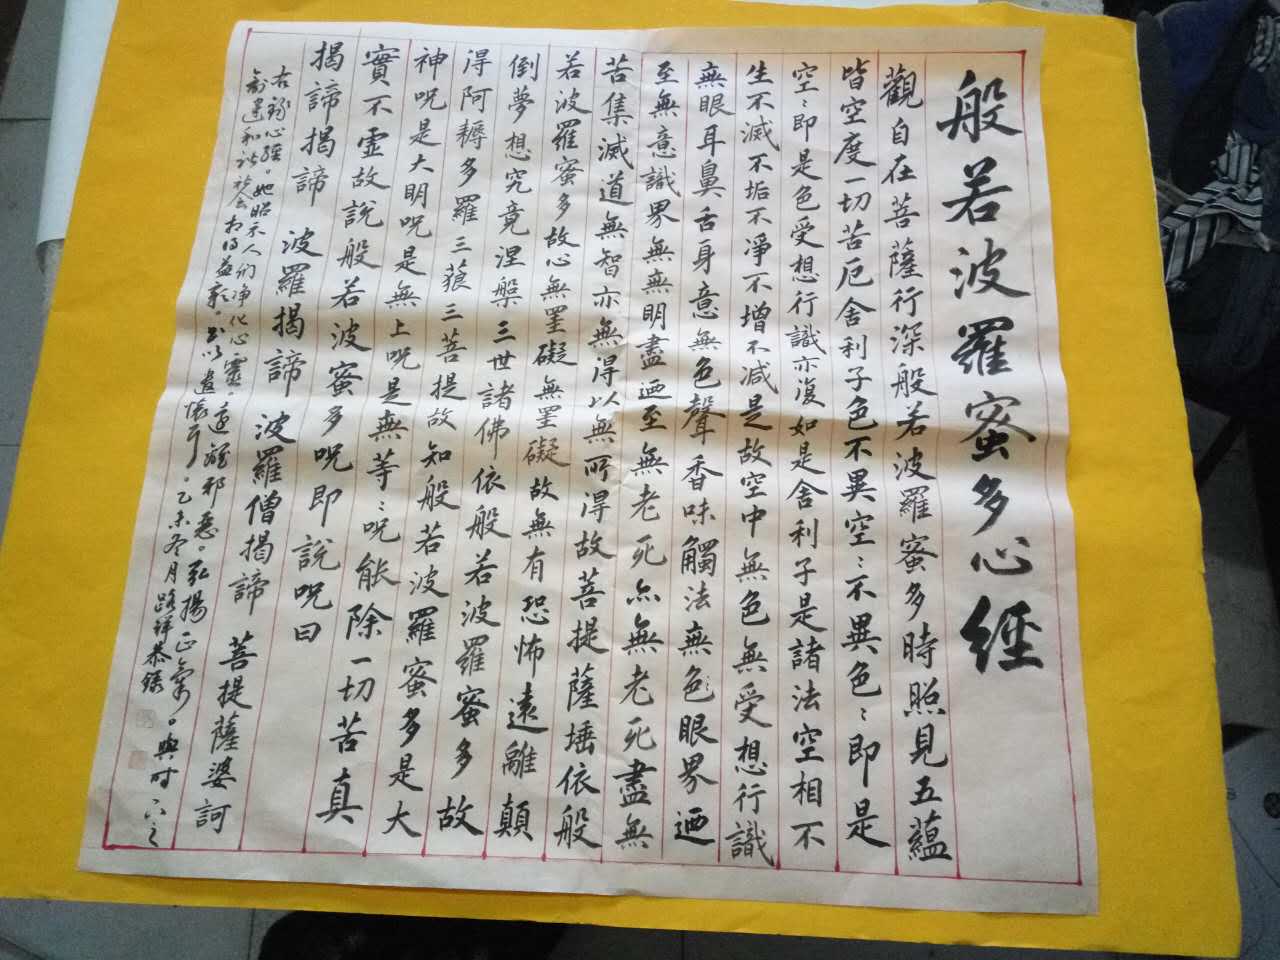 般若波羅蜜多心經
觀自在菩薩行深般若波羅蜜多時照見五蘊
皆空度一切苦厄舍利子色不異空〻不異色〻即是
空〻即是色受想行識亦復如是舍利子是諸法空相不
生不滅不垢不淨不增不減是故空中無色無受想行識
無眼耳鼻舌身意無色聲香味觸法無色眼界迺
至無意識界無無明盡迺至無老死亦無老死盡無
苦集滅道無智亦無得以無所得故菩提薩埵依般
若波羅蜜多故心無罣礙無罣礙故無有恐怖遠離顛
倒夢想究竟涅槃三世諸佛依般若波羅蜜多故
得阿耨多羅三藐三菩提故知般若波羅蜜多是大
神呪是大明呪是無上呪是無等〻呪能除一切苦真
實不虛故說般若波羅蜜多呪即說呪曰
揭諦揭諦 波羅揭諦 波羅僧揭諦 菩提薩婆訶
右錄心經。她昭示人们净化心靈。遠離邪惡。弘揚正氣。與时
和諧社会 乙未冬月路祥恭錄